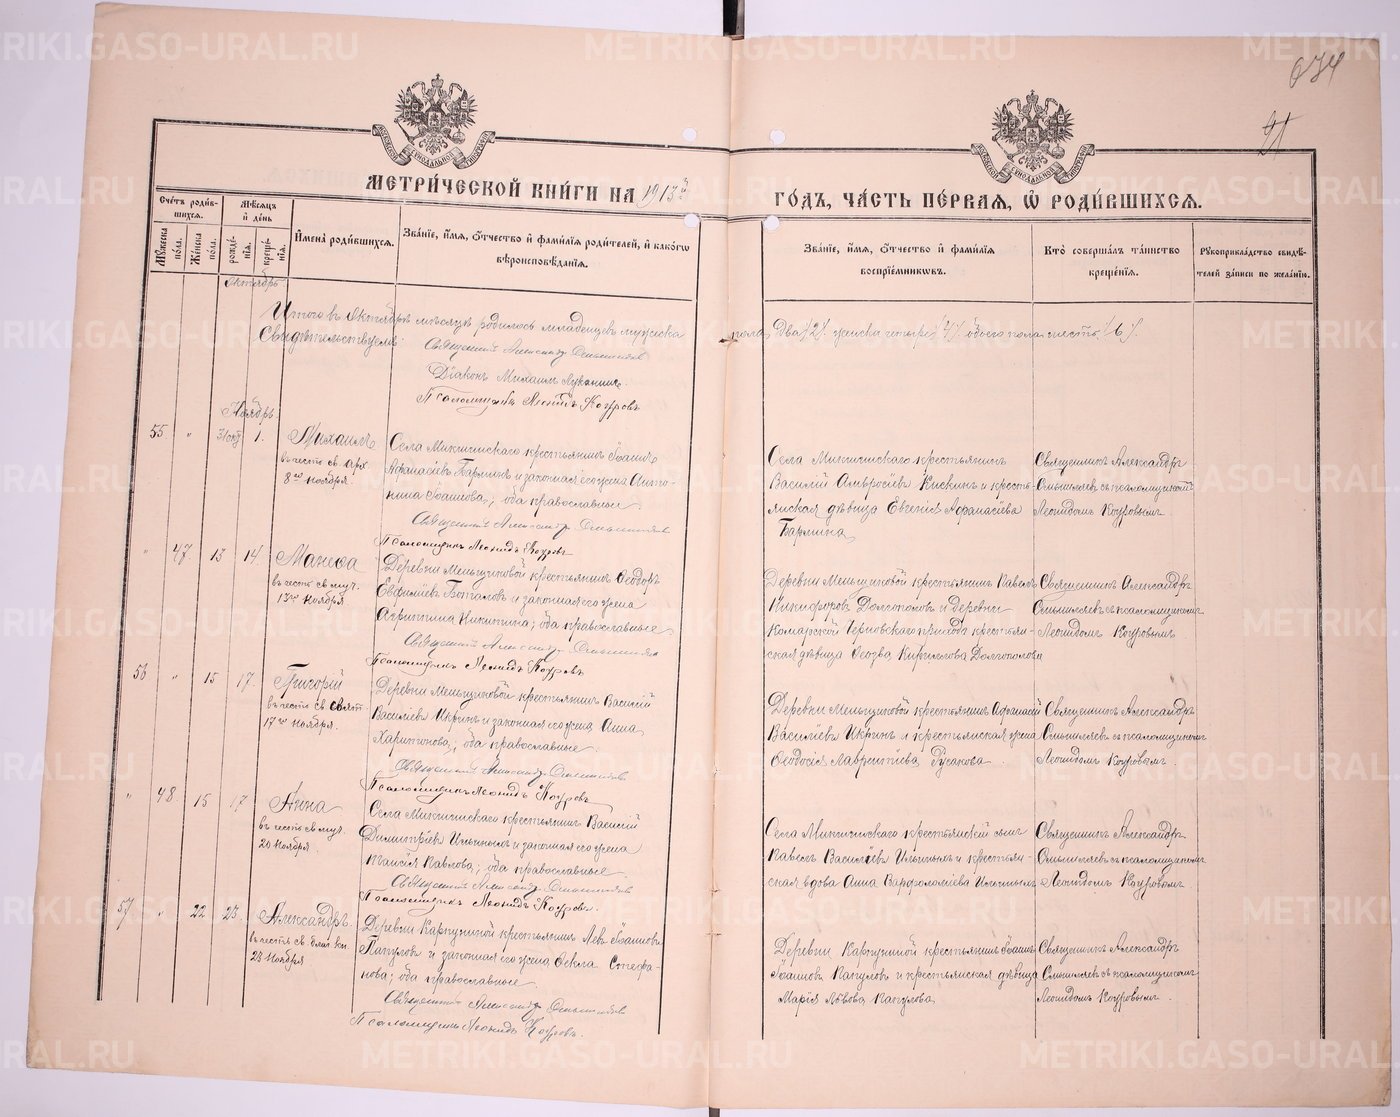 674
41
МЕТРИ́ЧЕСКОЙ КНИ́ГИ НА 1913 й
ГО́ДЪ, ЧА́СТЬ ПЕ́РВАЯ, Ѡ РОДИ́ВШИХСЯ.
Сче́тъ роди́вшихся.
Му́жеска по́ла.
Же́нска по́ла.
Мѣ́сяцъ и де́нь
рожде́нія.
креще́нія.
Имена̀ роди́вшихся.
Зва́ніе, и́мя, о́тчество и фами́лія роди́телей, и како́гѡ
вѣроисповѣ́данія.
Зва́ніе, и́мя, о́тчество и фами́лія
воспріе́мниковъ.
Кто̀ соверша́лъ та́инство
креще́нія.
Рукоприкла́дство свидѣ́-
телей за́писи по жела́нію.
Октябрь
Итого въ Октябрѣ мѣсяцѣ родилось младенцевъ мужеска
пола два /2/, женска четыре /4/ обоего пола шесть /6/
Свидѣтельствуемъ:
Священникъ Александръ
Діаконъ Михаилъ Луканинъ.
Псаломщикъ Леонидъ Коуровъ
Ноябрь
55 " 31 окт 1.
Михаилъ
въ честь св. Арх.
8го ноября.
Села крестьянинъ Іоаннъ
Афанасіевъ Бармин и законная его жена Анто-
нина Іоаннова, оба православные
Священникъ Александръ
Псаломщикъ Леонидъ Коуровъ
Села крестьянинъ
Василій Амвросіевъ Кискинъ и крестьян-
ская дѣвица Евгенія Афанасіева
Бармина
Священникъ Александръ
съ псаломщикомъ
Леонидомъ Коуровымъ
" 47 13 14
Манеѳа
въ честь св. муч.
13го ноября
Деревни Меньщиковой крестьянинъ Ѳеодоръ
Евфиміевъ Боталовъ и законная его жена
Агриппина Никитина; оба православные
Священникъ Александръ
Псаломщикъ Леонидъ Коуровъ
Деревни Меньщиковой крестьянинъ Павелъ
Никифоровъ Долгополовъ и деревни
Комарской Черновскаго прихода крестьян-
ская дѣвица Кириллова Долгополова
Священникъ Александръ
съ псаломщикомъ
Леонидомъ Коуровымъ
56 " 15 17
Григорій
въ честь св. Свят.
17го ноября
Деревни Меньщиковой крестьянинъ Василій
Василіевъ Икринъ и законная его жена Анна
Харитонова; оба православные
Священникъ Александръ
Псаломщикъ Леонидъ Коуровъ
Деревни Меньщиковой крестьянинъ Афанасій
Василіевъ Икринъ и крестьянская жена
Ѳеодосія Лаврентіева Русакова
Священникъ Александръ
съ псаломщикомъ
Леонидомъ Коуровымъ
" 48 15 17
Анна
въ честь св. муч.
20 ноября.
Села крестьянинъ Василій
Димитріевъ Ильиныхъ и законная его жена
Таисія Павлова; оба православные
Священникъ Александръ
Псаломщикъ Леонидъ Коуровъ.
Села крестьянскій сынъ
Павелъ Василіевъ Ильиныхъ и крестьян-
ская вдова Анна Варфоломіева Ильиныхъ
Священникъ Александръ
съ псаломщикомъ
Леонидомъ Коуровымъ
57 " 22 23
Александръ
въ честь св. благ. кн.
23 ноября
Деревни Карпушиной крестьянинъ Левъ Іоанновъ
Папуловъ и законная его жена Ѳекла Стефа-
нова; оба православные
Священникъ Александръ
Псаломщикъ Леонидъ Коуровъ.
Деревни Карпушиной крестьянинъ Іоаннъ
Іоанновъ Папуловъ и крестьянская дѣвица
Марія Львова Папулова
Священникъ Александръ
съ псаломщикомъ
Леонидомъ Коуровымъ
METRIKI.GASO-URAL.RU